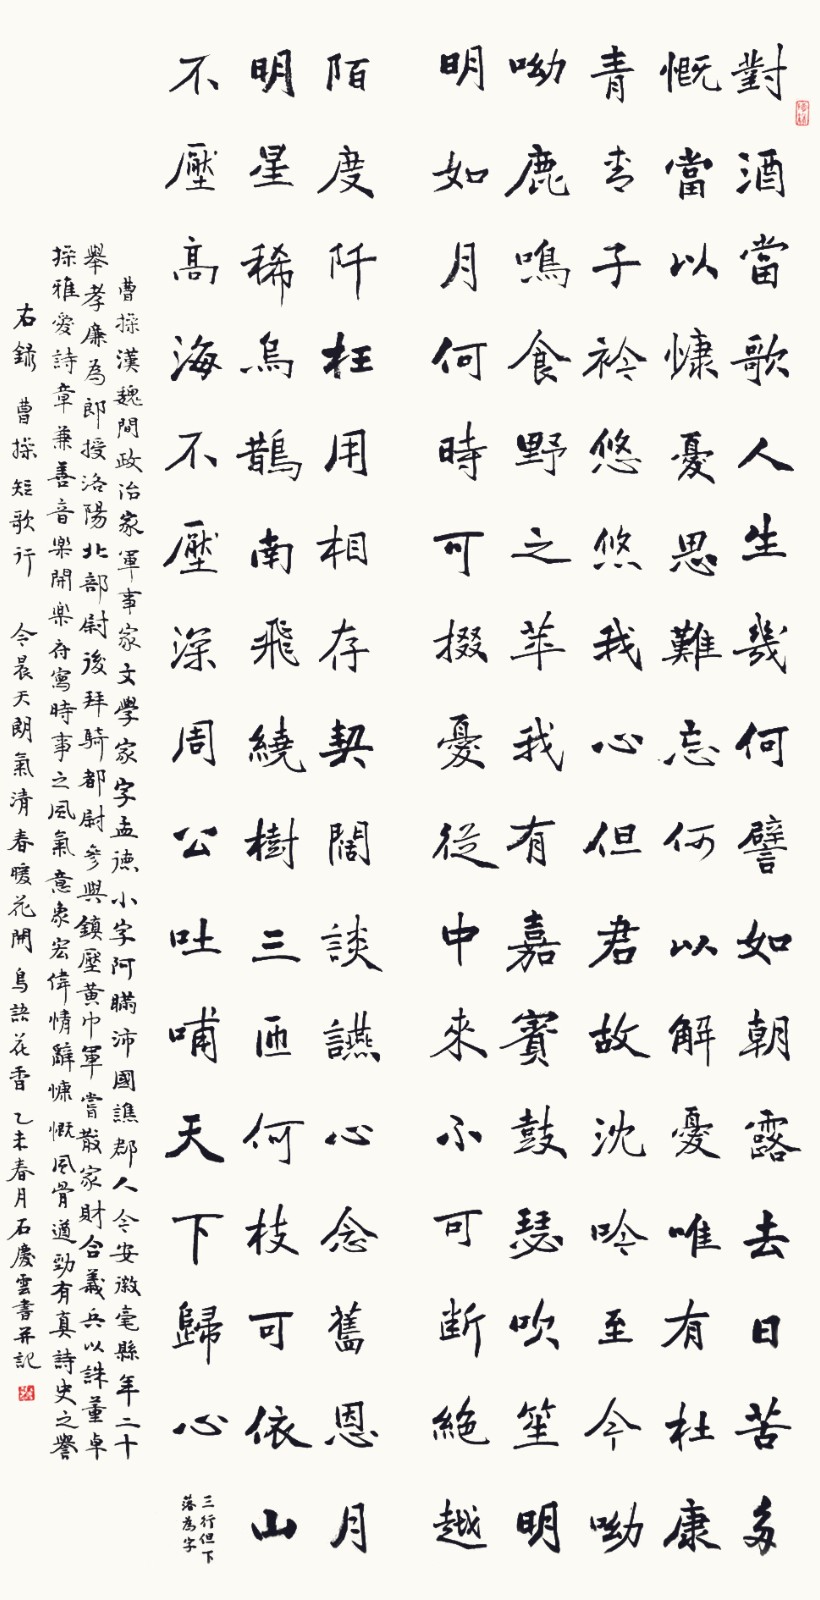 對酒當歌人生幾何譬如朝露去日苦多
慨當以慷憂思難忘何以解憂唯有杜康
青青子衿悠悠我心但君故沈吟至今呦
呦鹿鳴食野之苹我有嘉賓鼓瑟吹笙明
明如月何時可掇憂從中來不可斷絕越
陌度阡枉用相存契闊談讌心念舊恩月
明星稀烏鵲南飛繞樹三匝何枝可依山
不壓高海不壓深周公吐哺天下歸心
三行但下
落為字
曹操漢魏間政治家軍事家文學家字孟德小字阿瞞沛國譙郡人今安徽亳縣年二十
舉孝廉為郎授洛陽北部尉後拜騎都尉參與鎮壓黃巾軍嘗散家財合義兵以誅董卓
操雅愛詩章兼善音樂開樂府寫時事之風氣意象宏偉情辭慷慨風骨遒勁有真詩史之譽
右錄曹操短歌行 今晨天朗氣清春暖花開鳥語花香乙未春月石慶雲書并記